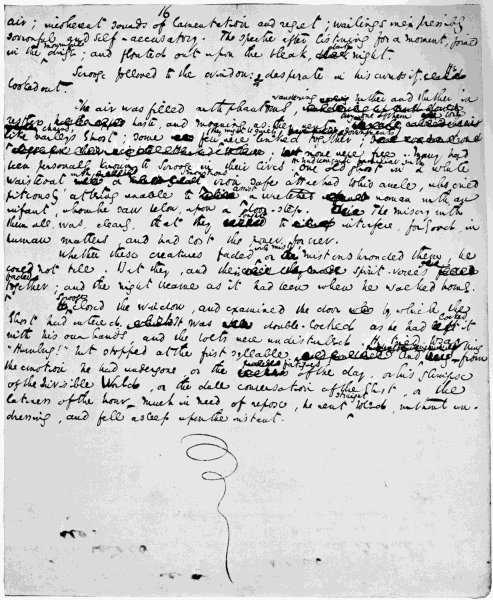 16
air; incoherent sounds of lamentation and regret; wailings inexpressibly
sorrowful and self-accusatory. The spectre after listening for a moment, joined
in the mournful dirge; and floated out upon the bleak, dark night.
Scrooge followed to the window: desperate in his curiosity. He
looked out.
The air was filled with phantoms, wandering hither and thither in
restless haste and moaning as they went. Every one of them wore chains
like Marley's Ghost; some few were linked together;
none were free. Many had
been personally known to Scrooge in their lives. One old ghost in a white
waistcoat with a monstrous iron safe attached to his ancle, who cried
piteously at being unable to assist a wretched woman with an
infant, whom he saw below, upon a door-step. The misery with
them all, was, clearly, that they sought to interfere, for good, in
human matters and had lost the power for ever.
Whether these creatures faded into mist or mist enshrouded them, he
could not tell. But they, and their spirit-voices faded
together; and the night became as it had been when he walked home.
Scrooge closed the window, and examined the door by which the
Ghost had entered. It was double-locked as he had locked it
with his own hands, and the bolts were undisturbed. He tried to say
"Humbug!" but stopped at the first syllable. And being from
the emotion he had undergone, or the fatigues of the day, or his glimpse
of the Invisible World, or the dull conversation of the Ghost, or the
lateness of the hour, much in need of repose, he went straight to bed, without un-
dressing, and fell asleep upon the instant.